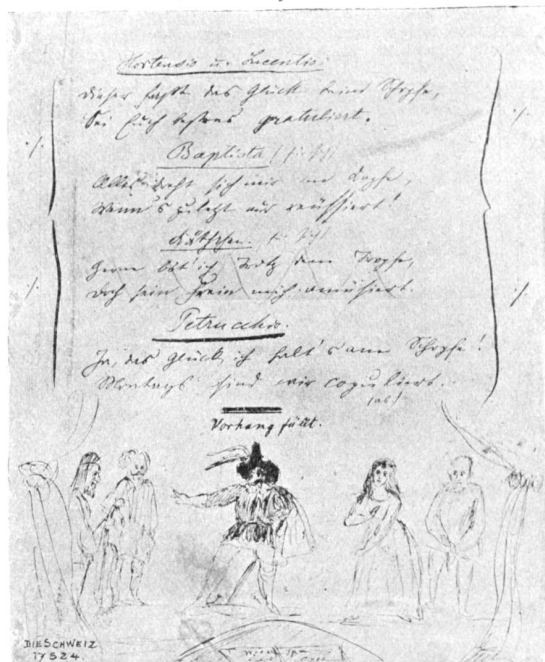 Hortensio u. Lucentio.
Dieser faßt das Glück beim Schopfe,
Sei Euch bestens gratuliert.
Baptista (für sich)
Alles dreht sich mir im Kopfe,
Wenn's zuletzt nur reüssiert!
Käthchen. (für sich)
Gerne böt' ich Trotz dem Tropfe,
Doch sein Frein mich amüsiert.
Petrucchio.
Ja, das Glück, ich halt's am Schopfe!
Montags sind wir copuliert.
(ab)
Vorhang fällt.
DIE SCHWEIZ
17524.